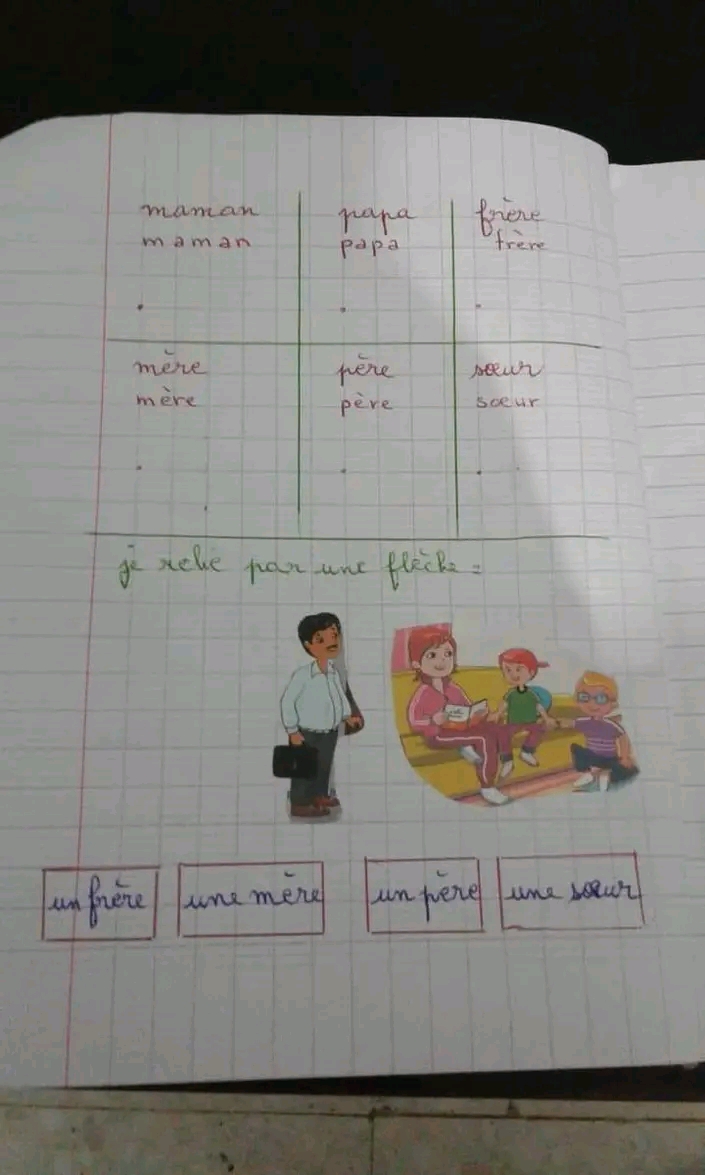 maman papa frère
maman papa frère
mère père sœur
mère père sœur
je relie par une flèche :
un frère une mère un père une sœur